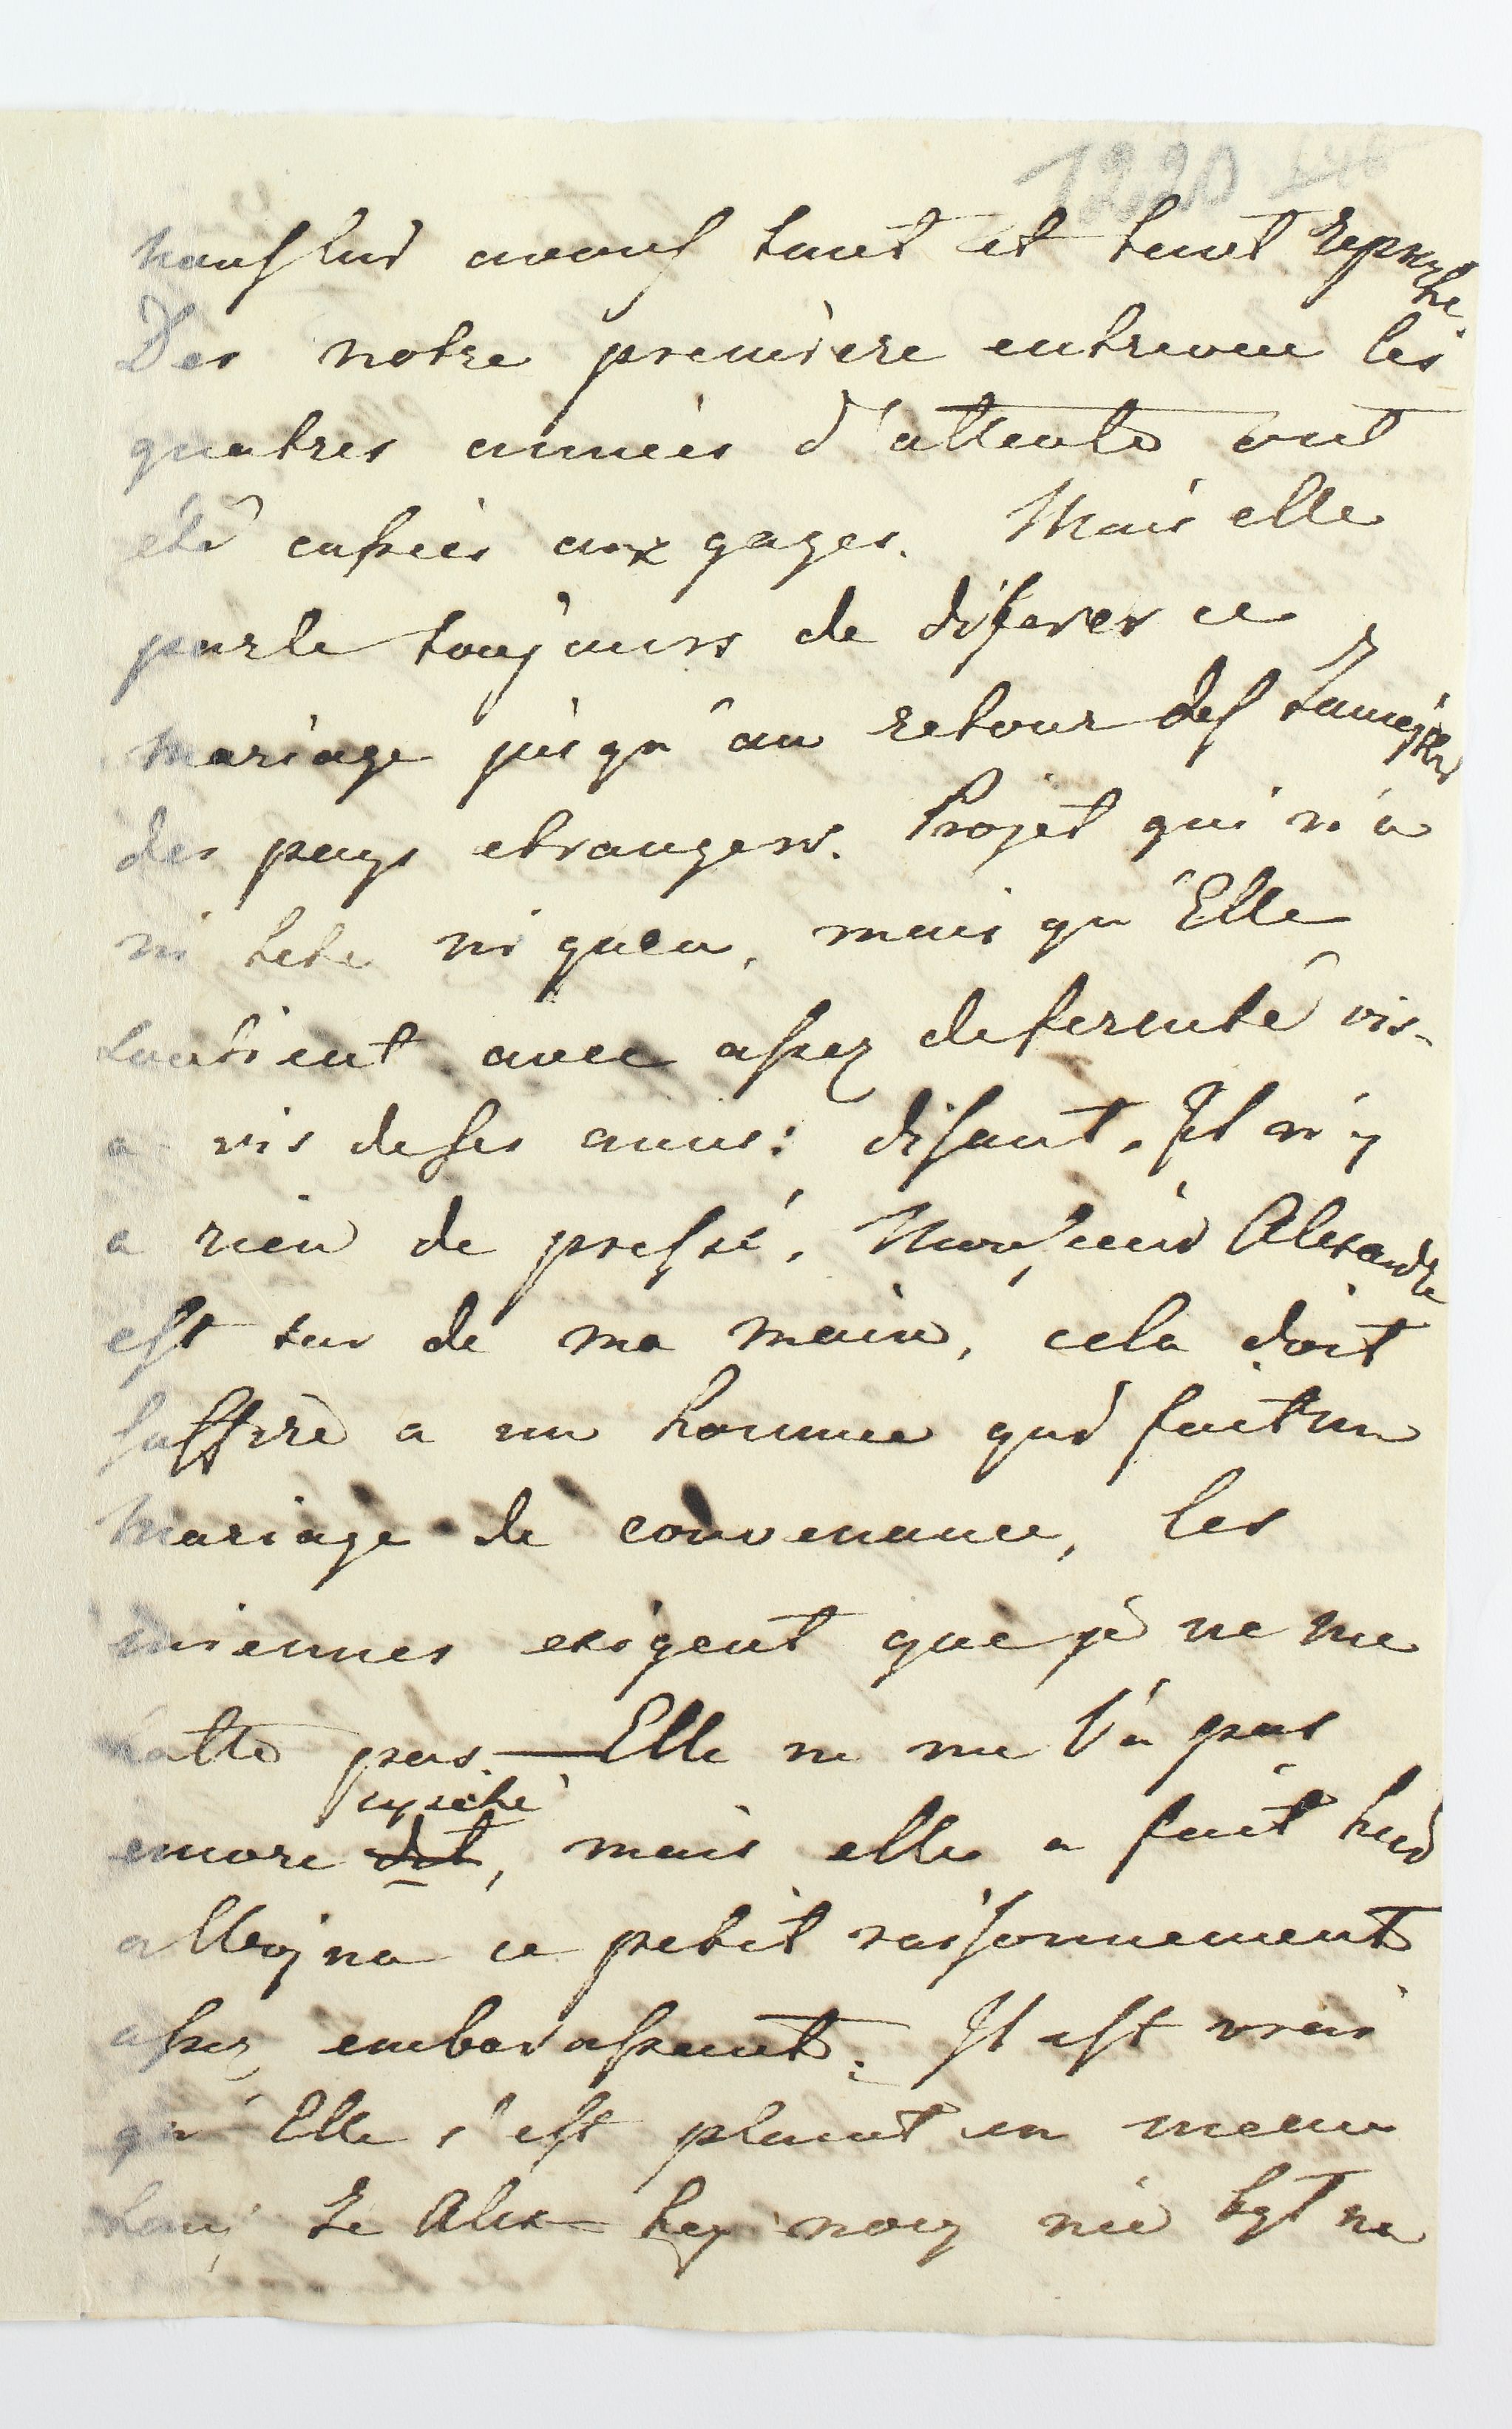 1220
nous lui avons tant et tant reproché.
Des notre premiere entrevue les
quatres années d'attente ont
été cassées aux gages. Mais elle
parle toujours de diferer ce
mariage jusqu'au retour des
des pays etrangers. Projet qui n'a
ni tete ni queu, mais qu'Elle
soutient avec assez de fermeté vis-
a vis de ses amis: disant, Il n'y
a rien de pressé, Monsieur Alexandre
est sur de ma main, cela doit
suffire a un homme qui fait un
mariage de convenance, les
miennes exigent que je ne me
hatte pas. — Elle ne me l'a pas
repeté
encore dit, mais elle a fait
ce petit raisonnement
assez embarassant. Il est vrai
qu'Elle s'est plaint en meme
Alex